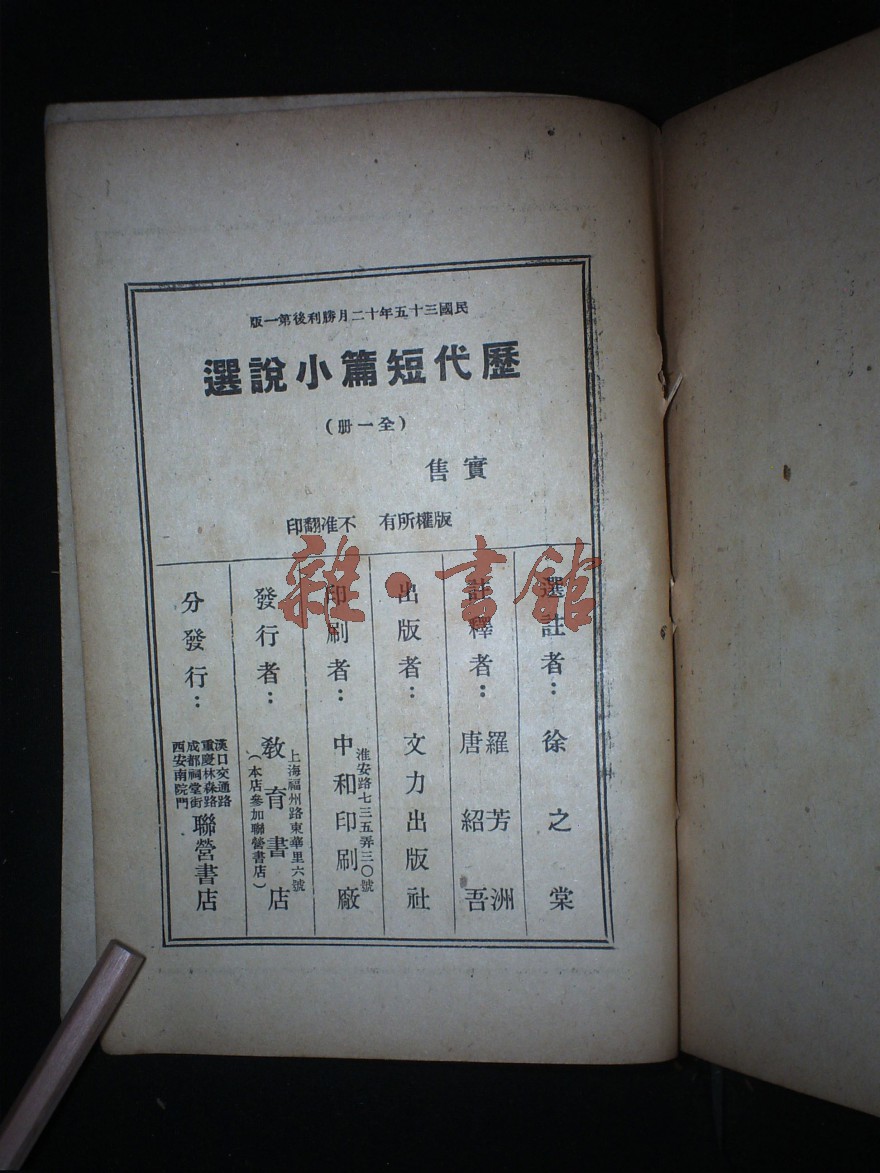 民國三十五年十二月勝利後第一版
歷代短篇小說選
（全一册）
實售
版權所有 不准翻印
選註者：徐之棠
註釋者：羅芳洲
唐紹吾
出版者：文力出版社
印刷者：中和印刷廠
淮安路七三五弄三〇號
發行者：教育書店
上海福州路東華里六號
（本店參加聯營書店）
分發行：
漢口交通路
重慶林森路
成都祠堂街
西安南院門
聯營書店
雜·書館